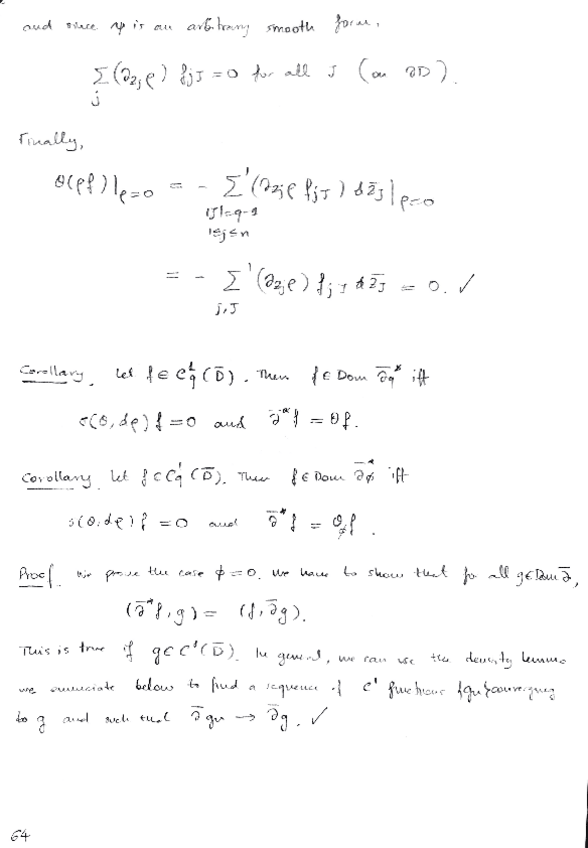 and since ψ is an arbitrary smooth form,
∑_j (∂_{z_j} ρ) f_{jJ} = 0 for all J (on ∂D).
Finally,
θ(ρf)|_{ρ=0} = - ∑' (∂_{z_j} ρ f_{jJ}) d z̄_J |_{ρ=0}
|J|=q-1
1≤j≤n
= - ∑'_{j,J} (∂_{z_j} ρ) f_{jJ} d z̄_J = 0. ✓
Corollary. Let f ∈ C^1_q (D̄). Then f ∈ Dom ∂̄_q^* iff
σ(θ, dρ) f = 0 and ∂̄^* f = θf.
Corollary. Let f ∈ C^1_q (D̄). Then f ∈ Dom ∂̄_φ^* iff
σ(θ, dρ) f = 0 and ∂̄^* f = θ_φ f.
Proof. We prove the case φ = 0. We have to show that for all g ∈ Dom ∂̄,
(∂̄^* f, g) = (f, ∂̄g).
This is true if g ∈ C^1(D̄). In general, we can use the density lemma
we enunciate below to find a sequence of C^1 functions {g_n} converging
to g and such that ∂̄g_n → ∂̄g. ✓
64